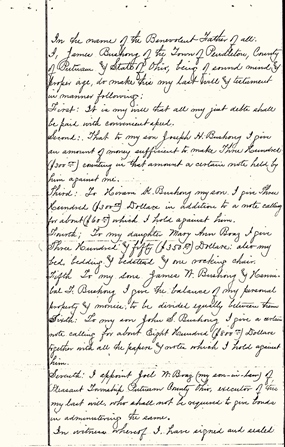 In the name of the Benevolent Father of all.
I, James Bushong of the Town of Pendleton, County
of Putnam & State of Ohio, being of sound mind &
proper age, do make this my last will & testament
in manner following:
First: It is my will that all my just debts shall
be paid with convenient speed.
Second: That to my son Joseph H. Bushong I give
an amount of money sufficient to make Three Hundred
($300⁰⁰) counting in that amount a certain note held by
him against me.
Third: To Hiram H. Bushong my son, I give Three
Hundred ($300⁰⁰) Dollars in addition to a note calling
for about ($60⁰⁰) which I hold against him.
Fourth; To my daughter Mary Ann Boay I give
Three Hundred & fifty ($350⁰⁰) Dollars, also my
bed, bedding & bedstead & one rocking chair.
Fifth To my sons James W. Bushong & Hanni-
bal T. Bushong I give the balance of my personal
property & monies, to be divided equally between them
Sixth: To my son John S. Bushong I give a certain
note calling for about Eight Hundred ($800⁰⁰) Dollars
together with all the papers & notes which I hold against
him.
Seventh: I appoint Joel W. Boay (my son-in-law) of
Pleasant Township Putnam County Ohio, executor of this
my last will, who shall not be required to give bonds
in administering the same.
In witness whereof I have signed and sealed